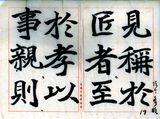 見稱於
匠者至
於孝以
事親則